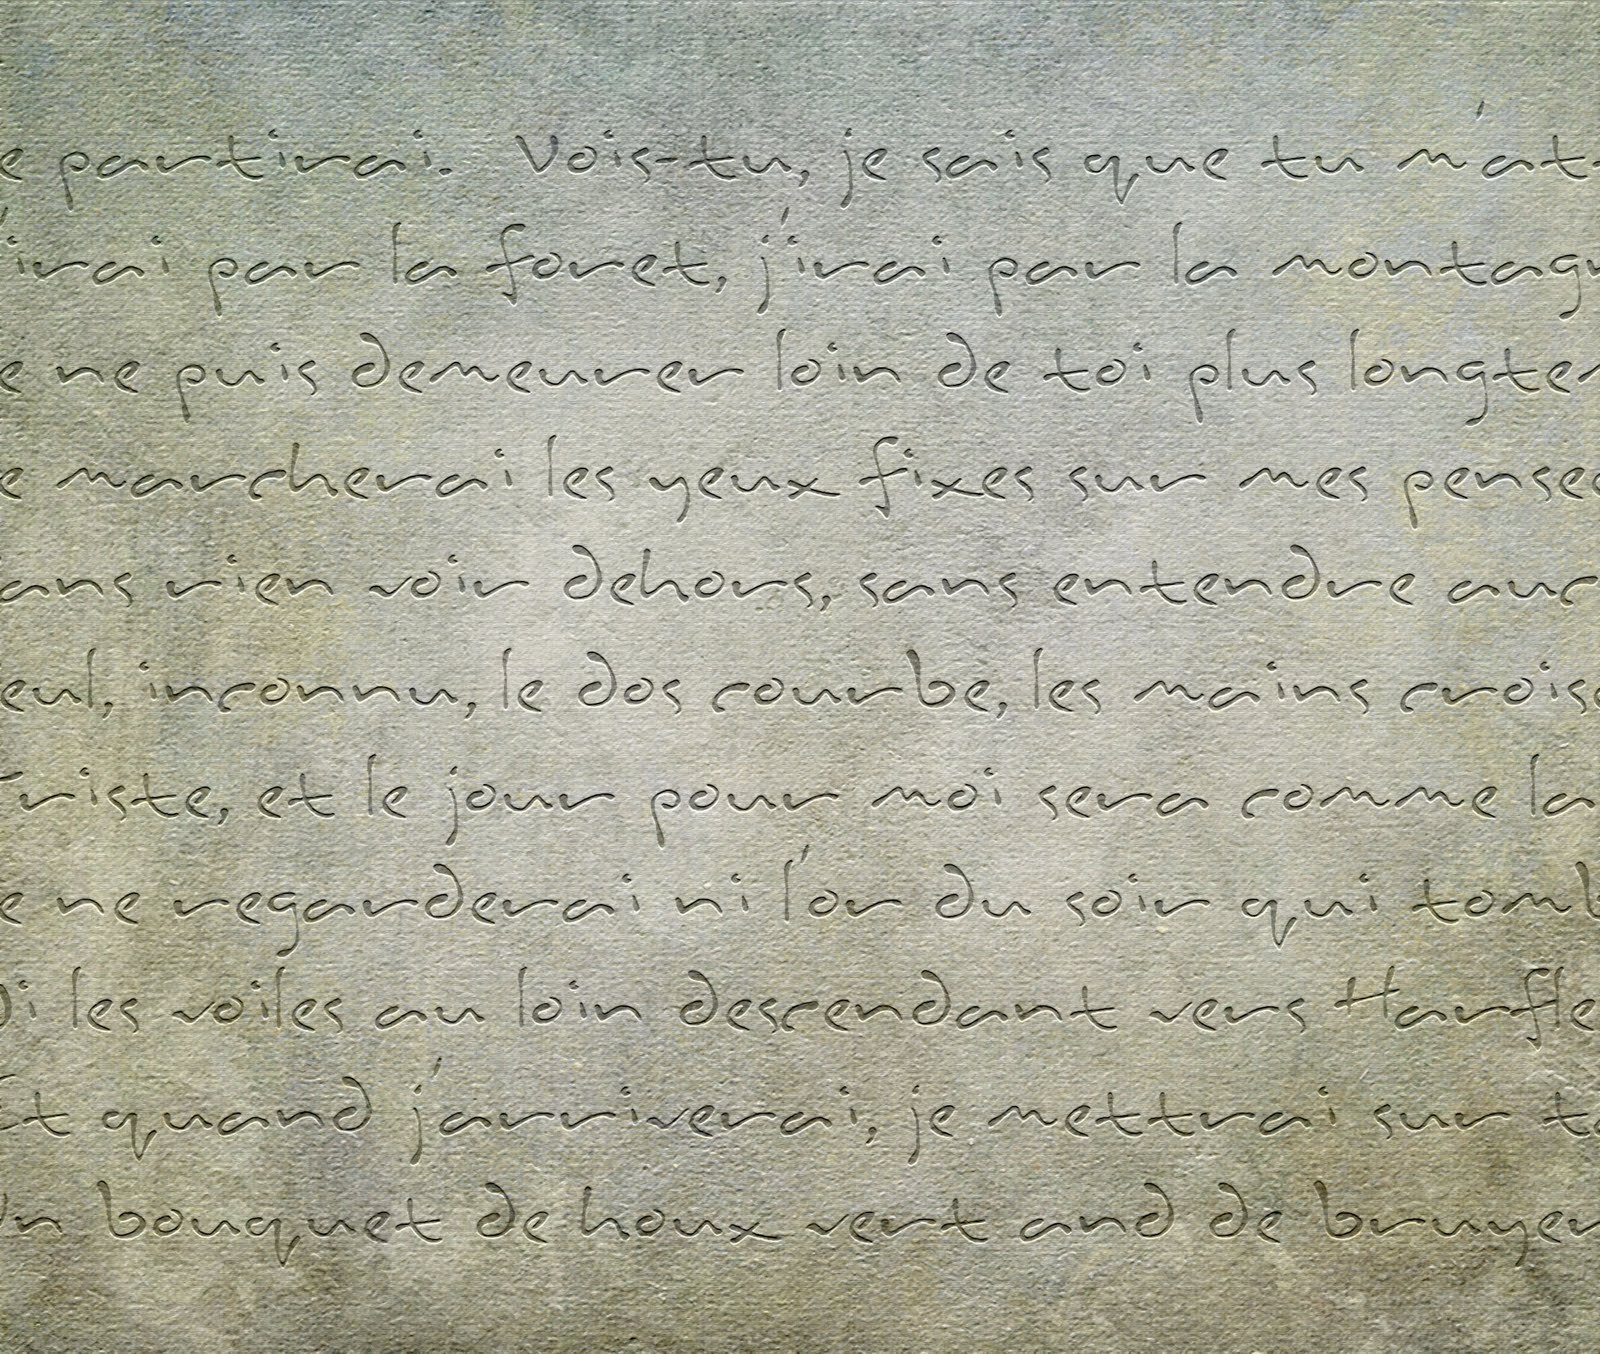 e partirai. Vois-tu, je sais que tu m'att
'irai par la foret, j'irai par la montagn
e ne puis demeurer loin de toi plus longtem
e marcherai les yeux fixes sur mes pensee
ans rien voir dehors, sans entendre auc
eul, inconnu, le dos courbe, les mains croise
Triste, et le jour pour moi sera comme la
e ne regarderai ni l'or du soir qui tomb
Ni les voiles au loin descendant vers Harfle
Et quand j'arriverai, je mettrai sur to
Un bouquet de houx vert and de bruyer